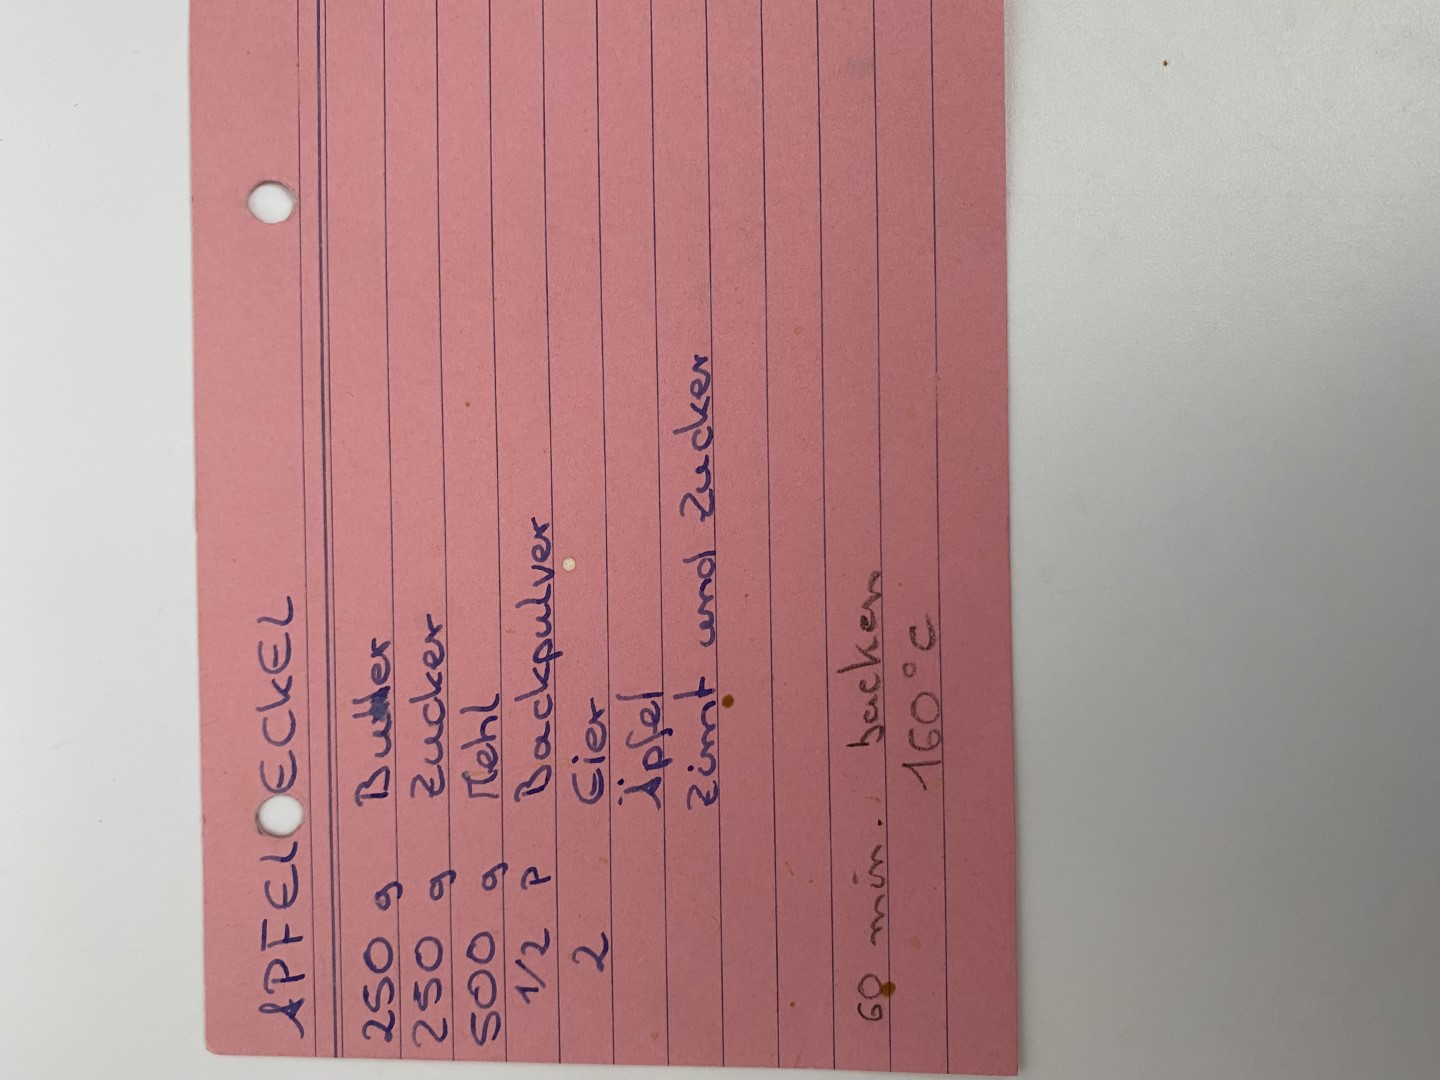 APFELDECKEL
250 g Butter
250 g Zucker
500 g Mehl
1/2 P Backpulver
2 Eier
Äpfel
Zimt und Zucker
60 min. backen
160°C